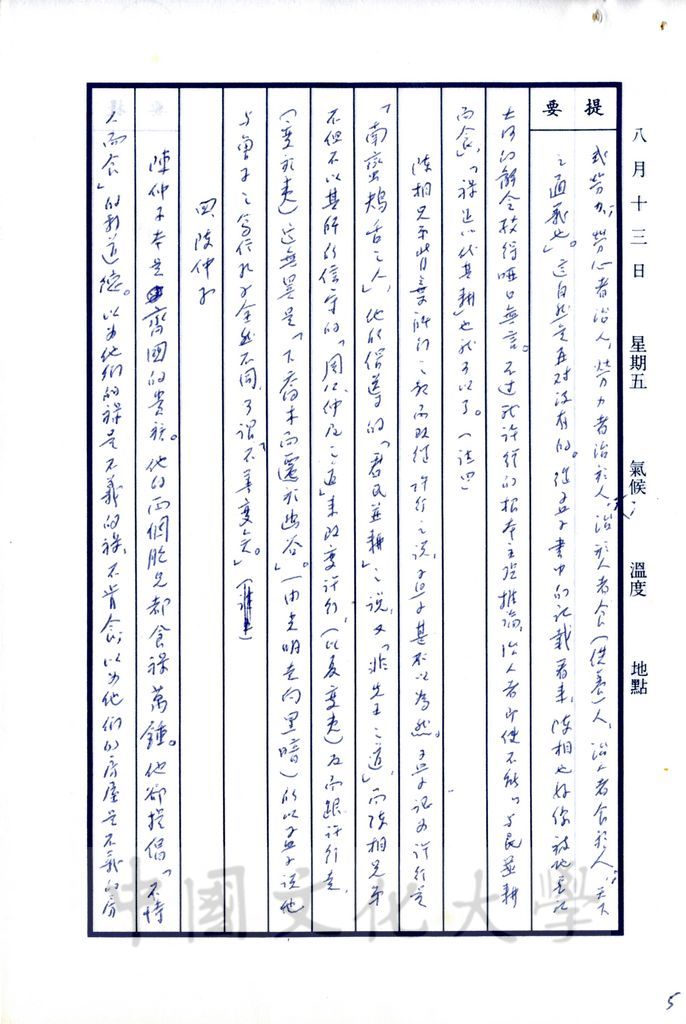 八月十三日 星期五 氣候 溫度 地點
提要
或勞力;勞心者治人,勞力者治於人;治於人者食(供養)人,治人者食於人;天
之通義也」。這自然是再對沒有的。從孟子書中的記載看來,陳相也好像被他這
的解令校得啞口無言。不過就許行的根本主張推論,治人者即使不能「與民並耕
而食」,「祿足以代其耕」也就可以了。(註四)
陳相兄弟背棄師門之教而改從許行之說,孟子甚不以為然。孟子認為許行是
「南蠻鴃舌之人」,他的倡導的「君民並耕」之說,又「非先王之道」,而陳相兄弟
不但不以其師所信守的「周公仲尼之道」來改變許行,(以夏變夷)反而跟許行走,
(變於夷)這無異是「下喬木而遷於幽谷」。(由光明走向黑暗)所以孟子說他
與曾子之篤信孔子全然不同,可謂「不善變矣。」
四、陳仲子
陳仲子本是齊國的貴族。他的兩個胞兄都食祿萬鍾。他卻提倡「不恃
人而食」的新道德。以為他們的祿是不義的祿,不肯食;以為他們的房屋是不義的房
中國文化大學
5